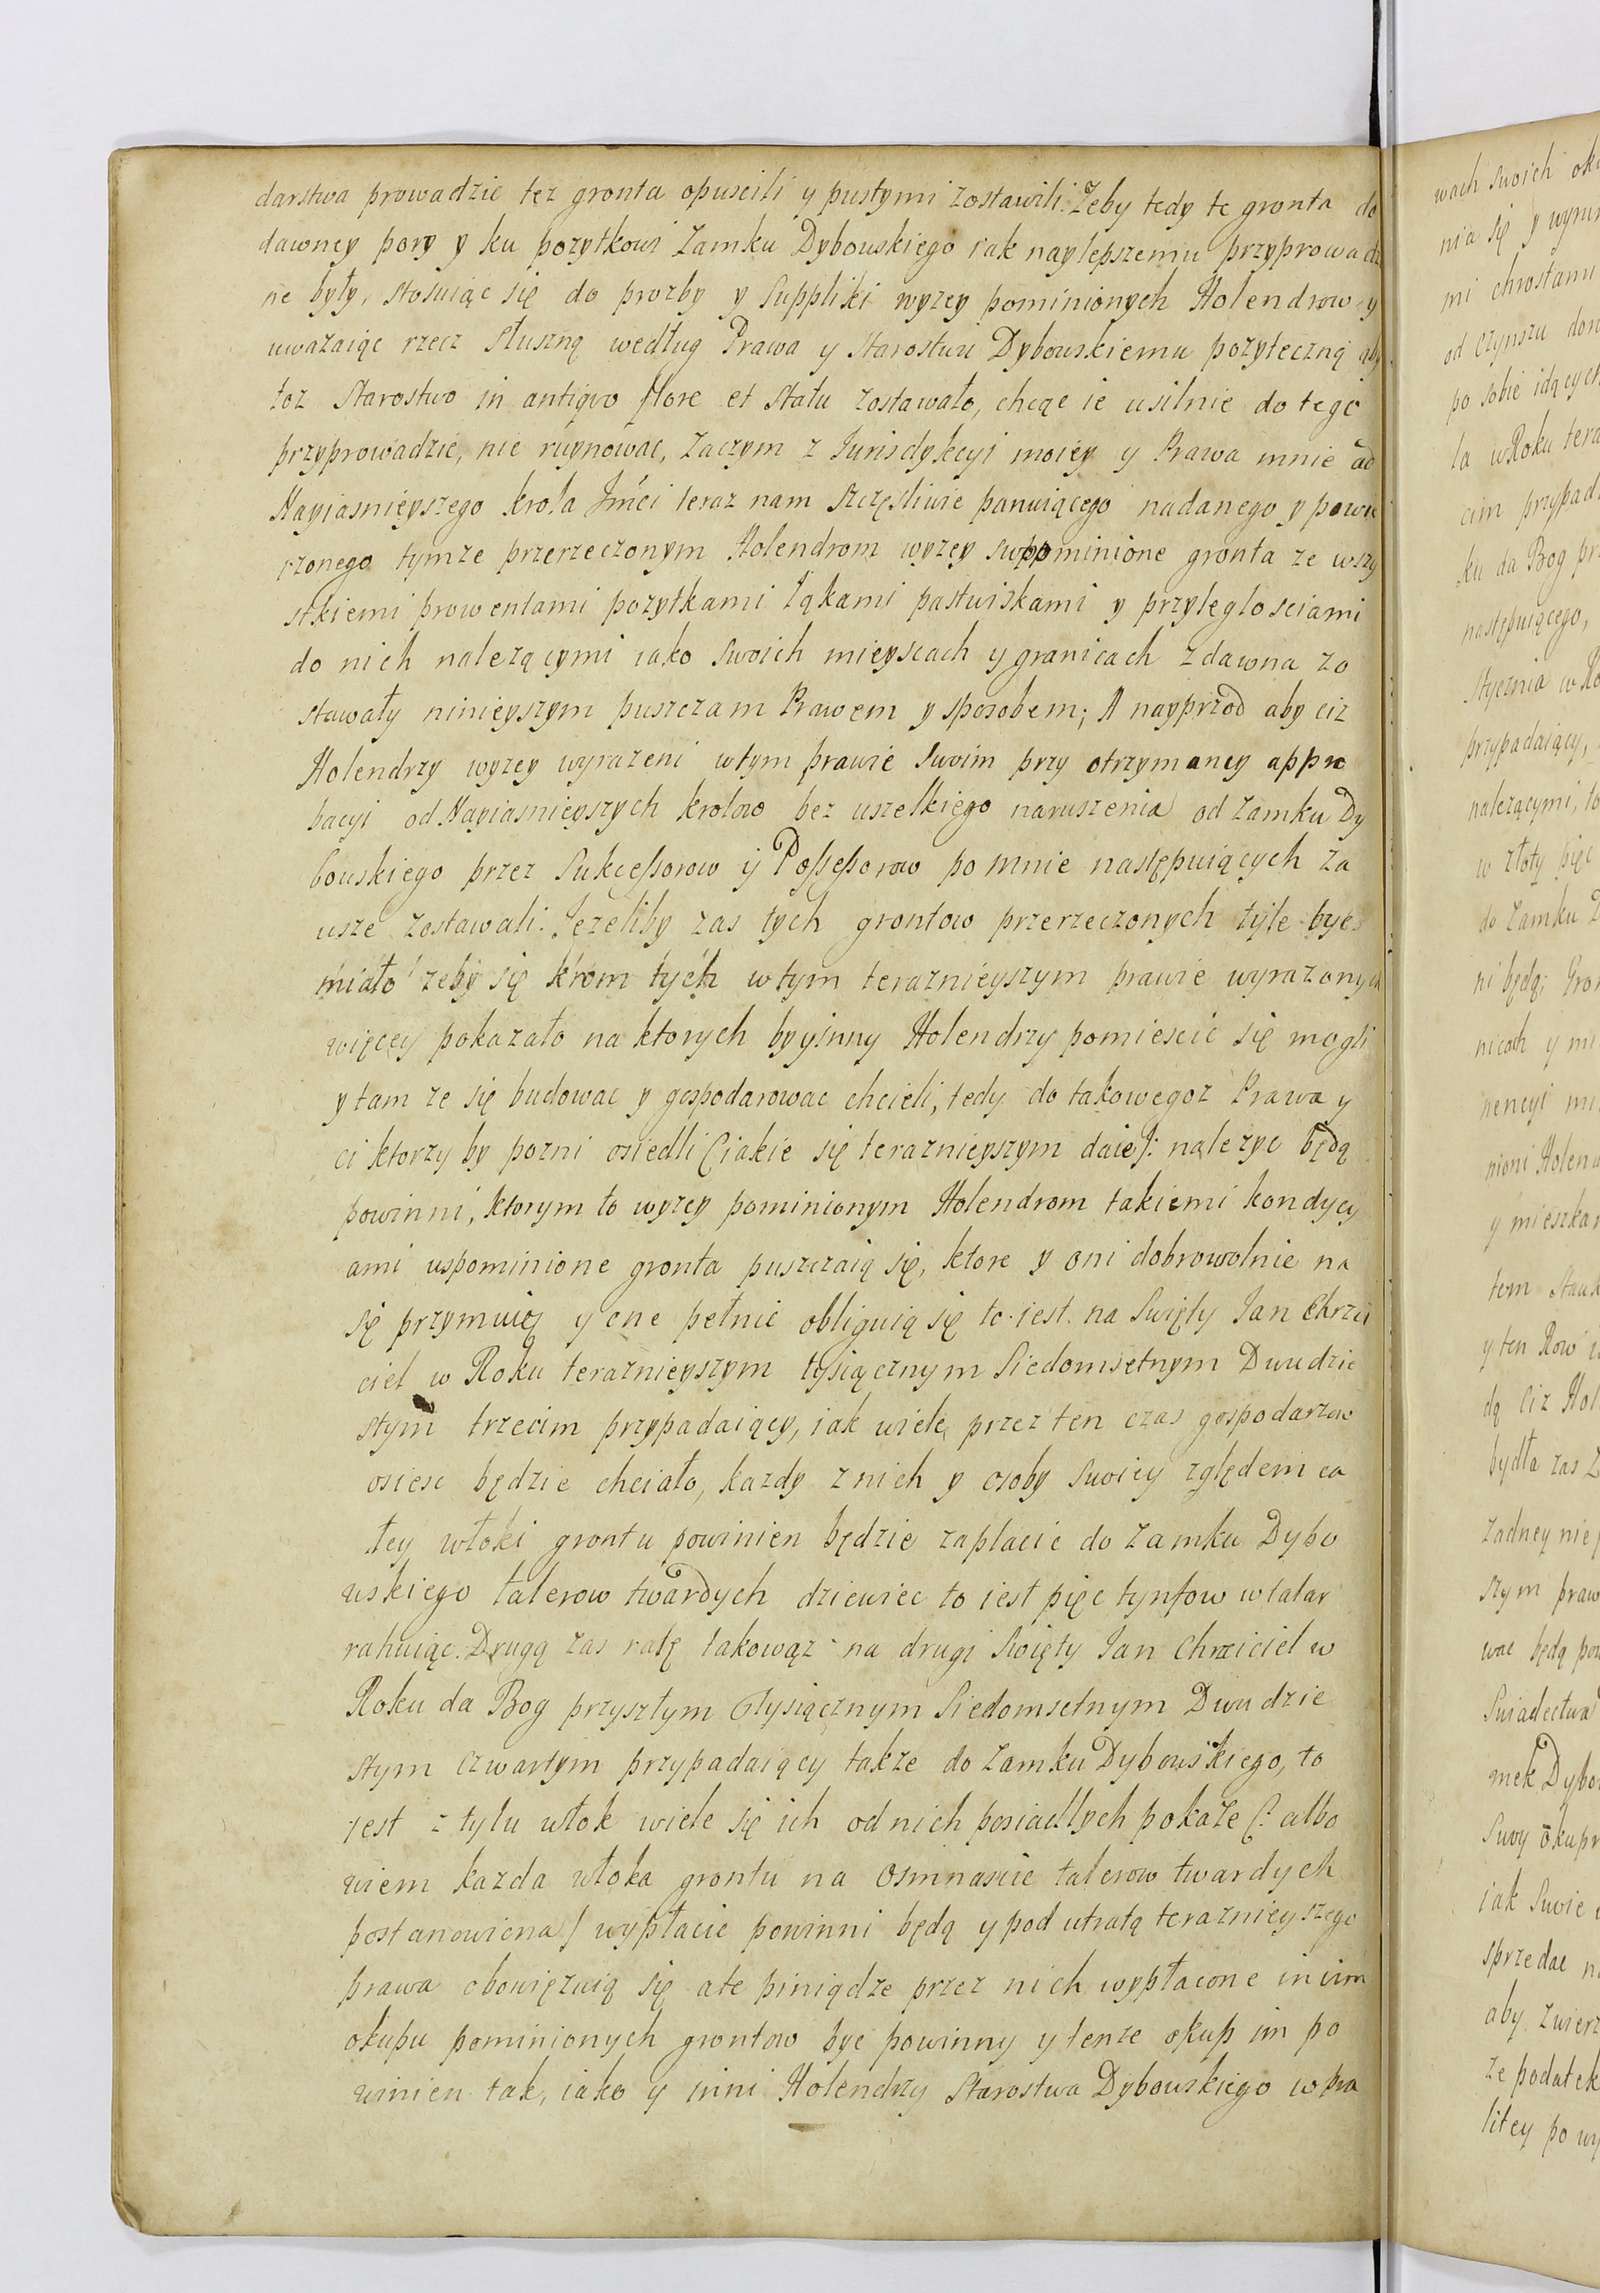 darstwa prowadzic tez gronta opuscili y pustymi zostawili. Zeby tedy te gronta do
dawney pory y ku pozytkowi Zamku Dybowskiego iak naylepszemu przyprowadzo
ne były, stosuiąc się do prozby y Suppliki wyzey pominionych Holendrow, y
uwazaiąc rzecz Słuszną według Prawa y Starostwu Dybowskiemu pozyteczną aby
toz Starostwo in antiqvo flore et statu zostawało, chcąc ie usilnie do tego
przyprowadzic, nie ruynowac, Zaczym z Iurisdykcyi moiey y Prawa mnie od
Nayiasnieyszego krola Jmci teraz nam szczęsliwie panuiącego nadanego y powie
rzonego tymze przerzeczonym Holendrom wyzey swppominione gronta ze wszy
stkiemi prowentami pozytkami łąkami pastwiskami y przyległosciami
do nich nalezącymi iako swoich mieyscach y granicach zdawna zo
stawały ninieyszym puszczam Prawem y sposobem; A nayprzod aby ciz
Holendrzy wyzey wyrazeni wtym prawie swoim przy otrzymaney appro
bacyi od Nayiasnieyszych krolow bez wszelkiego naruszenia od Zamku Dy
bowskiego przez Sukcessorow y Possessorow po mnie następuiących za
wsze zostawali. Jezeliby zas tych grontow przerzeczonych tyle byc
miało zeby się krom tych wtym teraznieyszym prawie wyrazonych
więcey pokazało na ktorych by yinny Holendrzy pomiescic się mogli
y tam ze się budowac y gospodarowac chcieli, tedy do takowegoz Prawa y
ci ktorzy by pozni osiedli (iakie się teraznieyszym daie): nalezyc będą
powinni, ktorym to wyzey pominionym Holendrom takiemi kondycy
ami wspominione gronta puszczaią się, ktore y oni dobrowolnie na
się przymuią y one pełnic obliguią się to iest. na Swięty Ian Chrzci
ciel w Roku teraznieyszym tysiącznym Siedomsetnym Dwudzie
stym trzecim przypadaiący, iak wiele przez ten czas gospodarzow
osiesc będzie chciało, kazdy z nich y osoby swoiey zględem ca
łey włoki grontu powinien będzie zapłacic do Zamku Dybo
wskiego talerow twardych dziewiec to iest pięc tynfow w talar
rahuiąc. Drugą zas ratę takowąz na drugi Swięty Ian Chrziciel w
Roku da Bog przyszłym Tysiącznym Siedomsetnym Dwudzie
stym Czwartym przypadaiący takze do Zamku Dybowskiego, to
iest z tylu włok wiele się ich od nich posiadłych pokaze (: albo
wiem kazda włoka grontu na Osmnascie talerow twardych
postanowiona) wypłacic powinni będą y pod utratą teraznieyszego
prawa obowięzuią się ate piniądze przez nich wypłacone in vim
okupu pominionych grontow byc powinny y tenze okup im po
winien tak, iako y inni Holendrzy Starostwa Dybowskiego w pra